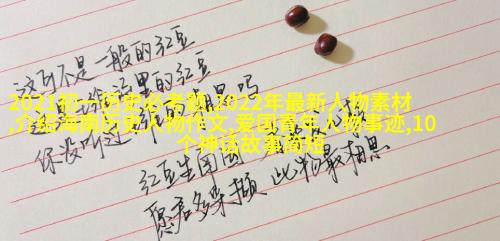 这可不是一般的红豆
这里的红豆
2021初一历史必考题,2022年最新人物素材
,介绍海南历史人物作文,爱国青年人物事迹,10
个神话故事简短
你没听过
吗
红豆生南国
愿君多采撷 此物最相思